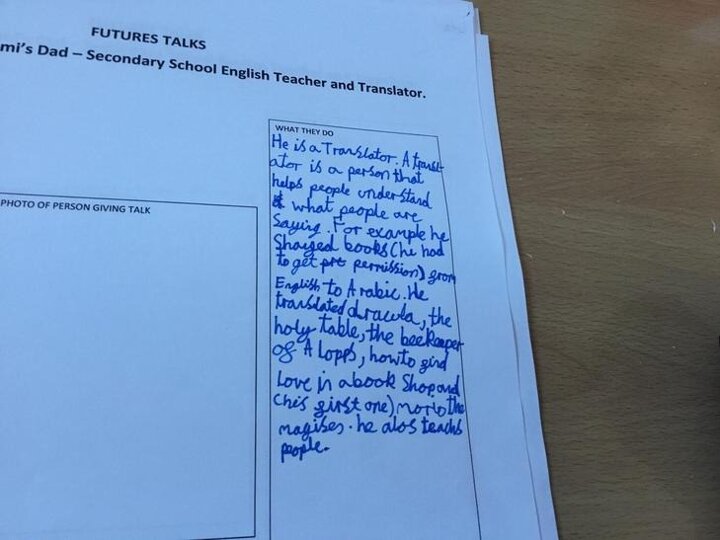 FUTURES TALKS
mi's Dad – Secondary School English Teacher and Translator.
PHOTO OF PERSON GIVING TALK
WHAT THEY DO
He is a Translator. A transl-
ator is a person that
helps people understand
what people are
Saying. For example he
Shanged books (he had
to get pre permission) grom
English to Arabic. He
translated dracula, the
holy table, the beekeeper
of A lopps, how to gind
Love in a book Shop and
(his girst one) morio the
magises. he alos teachs
people.